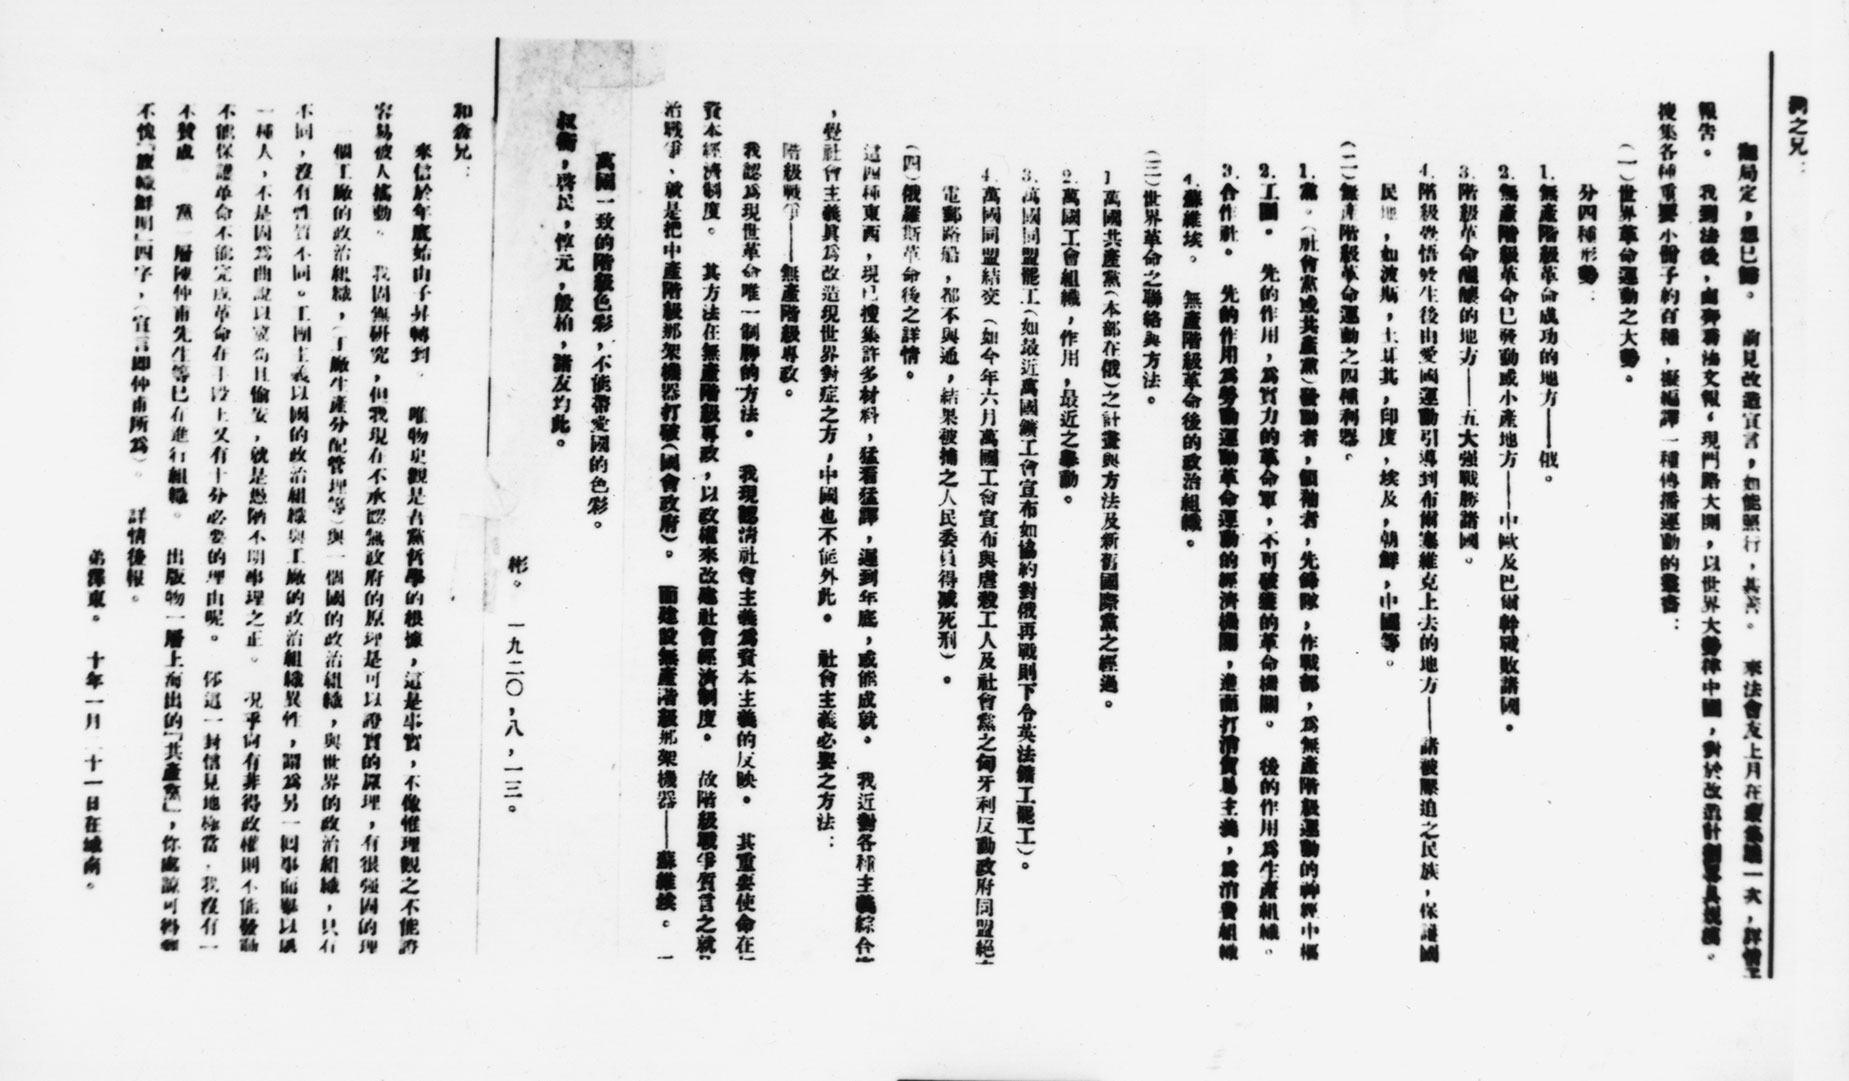 潤之兄：
湘局定，想已歸。　前見改造宣言，如能照行，甚善。　來法會友上月在蒙集議一次，詳情
報告。　我到法後，鹵莽看法文報，現門路大開，以世界大勢律中國，對於改造計劃略具規模。
搜集各種重要小冊子約百種，擬編譯一種傳播運動的叢書：
（一）世界革命運動之大勢。
分四種形勢：
1.無產階級革命成功的地方——俄。
2.無產階級革命已發動或小產地方——中歐及巴爾幹戰敗諸國。
3.階級革命醞釀的地方——五大強戰勝諸國。
4.階級覺悟發生後由愛國運動引導到布爾塞維克上去的地方——諸被壓迫之民族，保護國
民地，如波斯，土耳其，印度，埃及，朝鮮，中國等。
（二）無產階級革命運動之四種利器。
1.黨。（社會黨或共產黨）發動者，領袖者，先鋒隊，作戰部，爲無產階級運動的神經中樞
2.工團。　先的作用，爲實力的革命軍，不可破獲的革命機關。　後的作用爲生產組織。
3.合作社。　先的作用爲勞動運動革命運動的經濟機關，進而打消貿易主義，爲消費組織
4.蘇維埃。　無產階級革命後的政治組織。
（三）世界革命之聯絡與方法。
1.萬國共產黨（本部在俄）之計畫與方法及新舊國際黨之經過。
2.萬國工會組織，作用，最近之舉動。
3.萬國同盟罷工（如最近萬國鑛工會宣布如協約對俄再戰則下令英法鑛工罷工）。
4.萬國同盟結交（如今年六月萬國工會宣布與虐殺工人及社會黨之匈牙利反動政府同盟絕
電郵路船，都不與通，結果被捕之人民委員得減死刑）。
（四）俄羅斯革命後之詳情。
這四種東西，現已搜集許多材料，猛看猛譯，遲到年底，或能成就。　我近對各種主義綜合
，覺社會主義眞爲改造現世界對症之方，中國也不能外此。　社會主義必要之方法：
階級戰爭——無產階級專政。
我認爲現世革命唯一制勝的方法。　我現認淸社會主義爲資本主義的反映。　其重要使命在
資本經濟制度。　其方法在無產階級專政，以政權來改建社會經濟制度。　故階級戰爭質言之就
治戰爭，就是把中產階級那架機器打破（國會政府）。　而建設無產階級那架機器——蘇維埃。
萬國一致的階級色彩，不能帶愛國的色彩。
叔衡，啓民，惇元，殷柏，諸友均此。
彬。　一九二〇，八，一三。
和森兄：
來信於年底始由子昇轉到。　唯物史觀是吾黨哲學的根據，這是事實，不像惟理觀之不能證
容易被人搖動。　我固無硏究，但我現在不承認無政府的原理是可以證實的原理，有很強固的理
一個工廠的政治組織，（工廠生產分配管理等）與一個國的政治組織，與世界的政治組織，只有
不同，沒有性質不同。工團主義以國的政治組織與工廠的政治組織異性，謂爲另一回事而舉以屬
一種人，不是固爲曲說以冀苟且偷安，就是愚陋不明事理之正。　況乎尙有非得政權則不能發動
不能保護革命不能完成革命在手段上又有十分必要的理由呢。　你這一封信見地極當，我沒有一
不贊成　黨一層陳仲甫先生等已在進行組織。　出版物一層上海出的「共產黨」，你處諒可得到
不愧「旗幟鮮明」四字，（宣言即仲甫所爲）。　詳情後報。
弟澤東。　十年一月二十一日在城南。